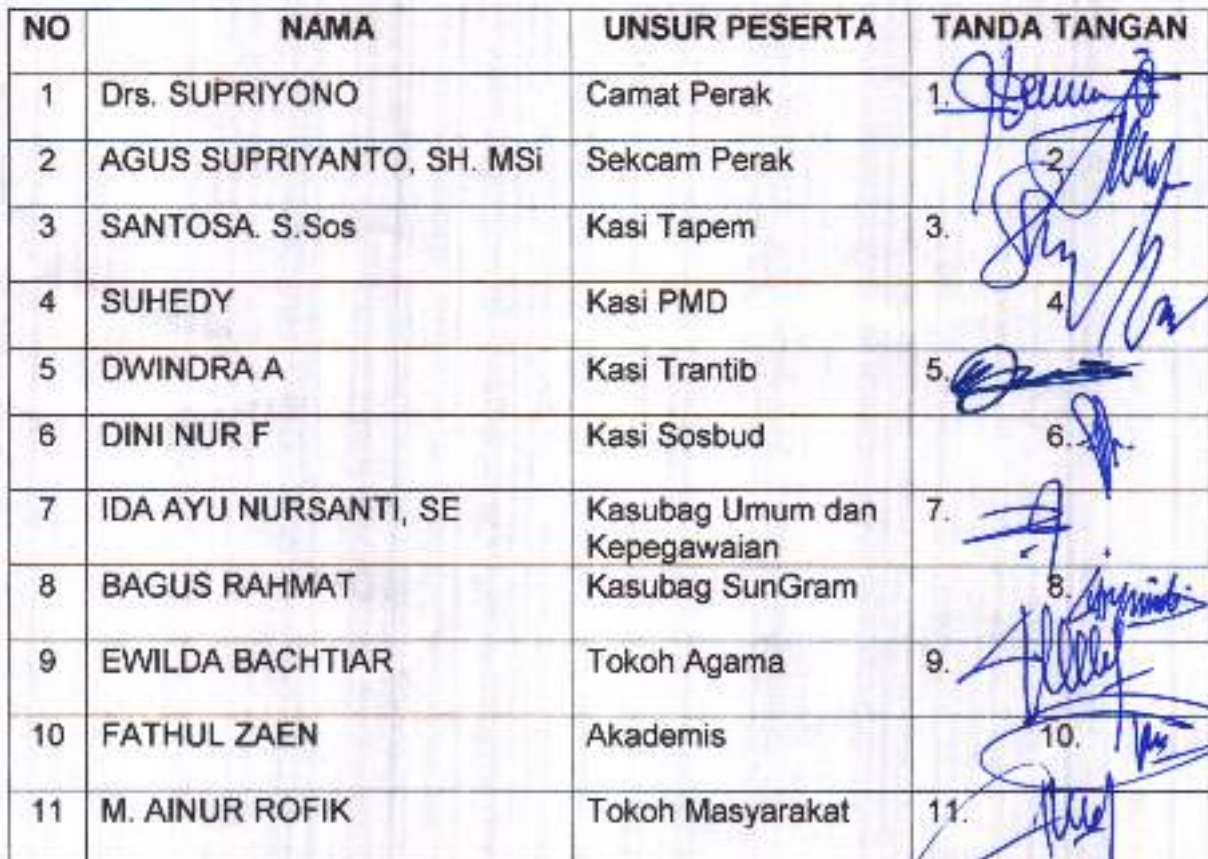 NO NAMA UNSUR PESERTA TANDA TANGAN
1 Drs. SUPRIYONO Camat Perak 1.
2 AGUS SUPRIYANTO, SH. MSi Sekcam Perak 2.
3 SANTOSA. S.Sos Kasi Tapem 3.
4 SUHEDY Kasi PMD 4
5 DWINDRA A Kasi Trantib 5.
6 DINI NUR F Kasi Sosbud 6.
7 IDA AYU NURSANTI, SE Kasubag Umum dan 7.
Kepegawaian
8 BAGUS RAHMAT Kasubag SunGram 8.
9 EWILDA BACHTIAR Tokoh Agama 9.
10 FATHUL ZAEN Akademis 10.
11 M. AINUR ROFIK Tokoh Masyarakat 11.